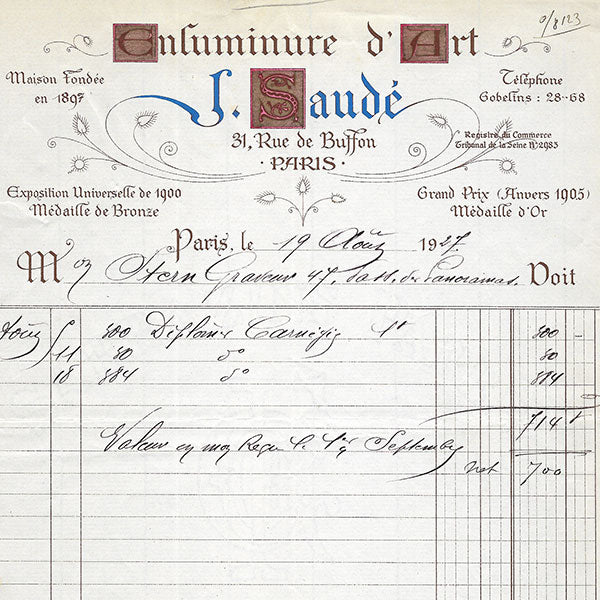 0/8123
Enluminure d'Art
J. Saudé
Maison Fondée
en 1897
Téléphone
Gobelins : 28-68
31, Rue de Buffon
· PARIS ·
Registre du Commerce
Tribunal de la Seine N° 2985
Exposition Universelle de 1900
Médaille de Bronze
Grand Prix (Anvers 1905)
Médaille d'Or
Paris, le 19 Août 1927.
M Stern Graveur 47, Pass. des Panoramas. Doit
Août 300 Diplômes Carnégie 1f 300 -
11 30 do 30
18 384 do 384
714 f
Valeur en mon Reçu le 1er 9 Septembre
net 700